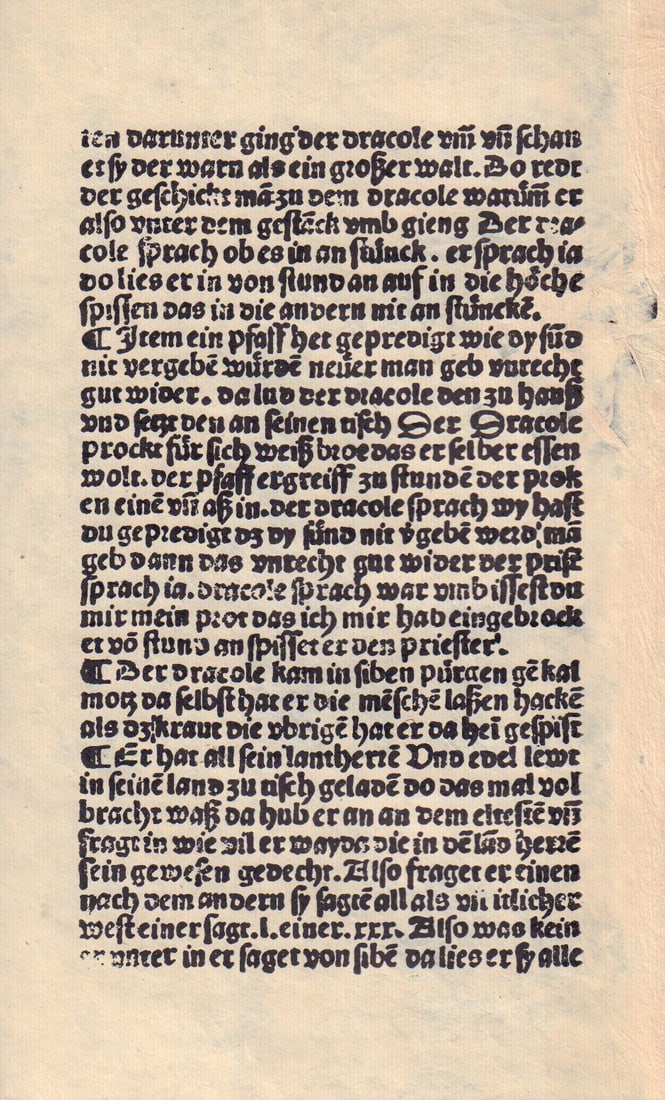 ten darunter ging der dracole vm̄ vn̄ schau
et sy der warn als ein großer walt. Do redt
der geschickt mā zu dem dracole warūm er
also vnter dem gestāck vmb gieng Der dra⸗
cole sprach ob es in an stünck. er sprach ia
do lies er in von stund an auf in die höche
spissen das in die andern nit an stünckē.
¶ Item ein pfaff het gepredigt wie dy sünd
nit vergebē würdē neüer man geb vnrecht
gut wider. da lud der dracole den zu hauß
vnd setzt den an seinen tisch Der Dracole
prockt für sich weiß broe das er selber essen
wolt. der pfaff ergreiff zu stundē der prok
en einē vn̄ aß in. der dracole sprach wy hast
du gepredigt dz dy sünd nit v̓gebē werd, mā
geb dann das vnrecht gut wider der prist
sprach ia. dracole sprach war vmb issest du
mir mein prot das ich mir hab eingebrock
et vō stund an spisset er den priester.
¶ Der dracole kam in siben pürgen gē kal
motz da selbst hat er die mēschē laßen hackē
als dz kraut die vbrigē hat er da hei gespist
¶ Er hat all sein lantherrē Vnd edel lewt
in seinē land zu tisch geladē do das mal vol
bracht waß da hub er an an dem eltestē vn̄
fragt in wie vil er wayda die in dē lād herrē
sein gewesen gedecht. Also fraget er einen
nach dem andern sy sagtē all als vil itlicher
west einer sagt. l. einer. xxx. Also was kein
er vnter in er saget von sibē da lies er sy alle